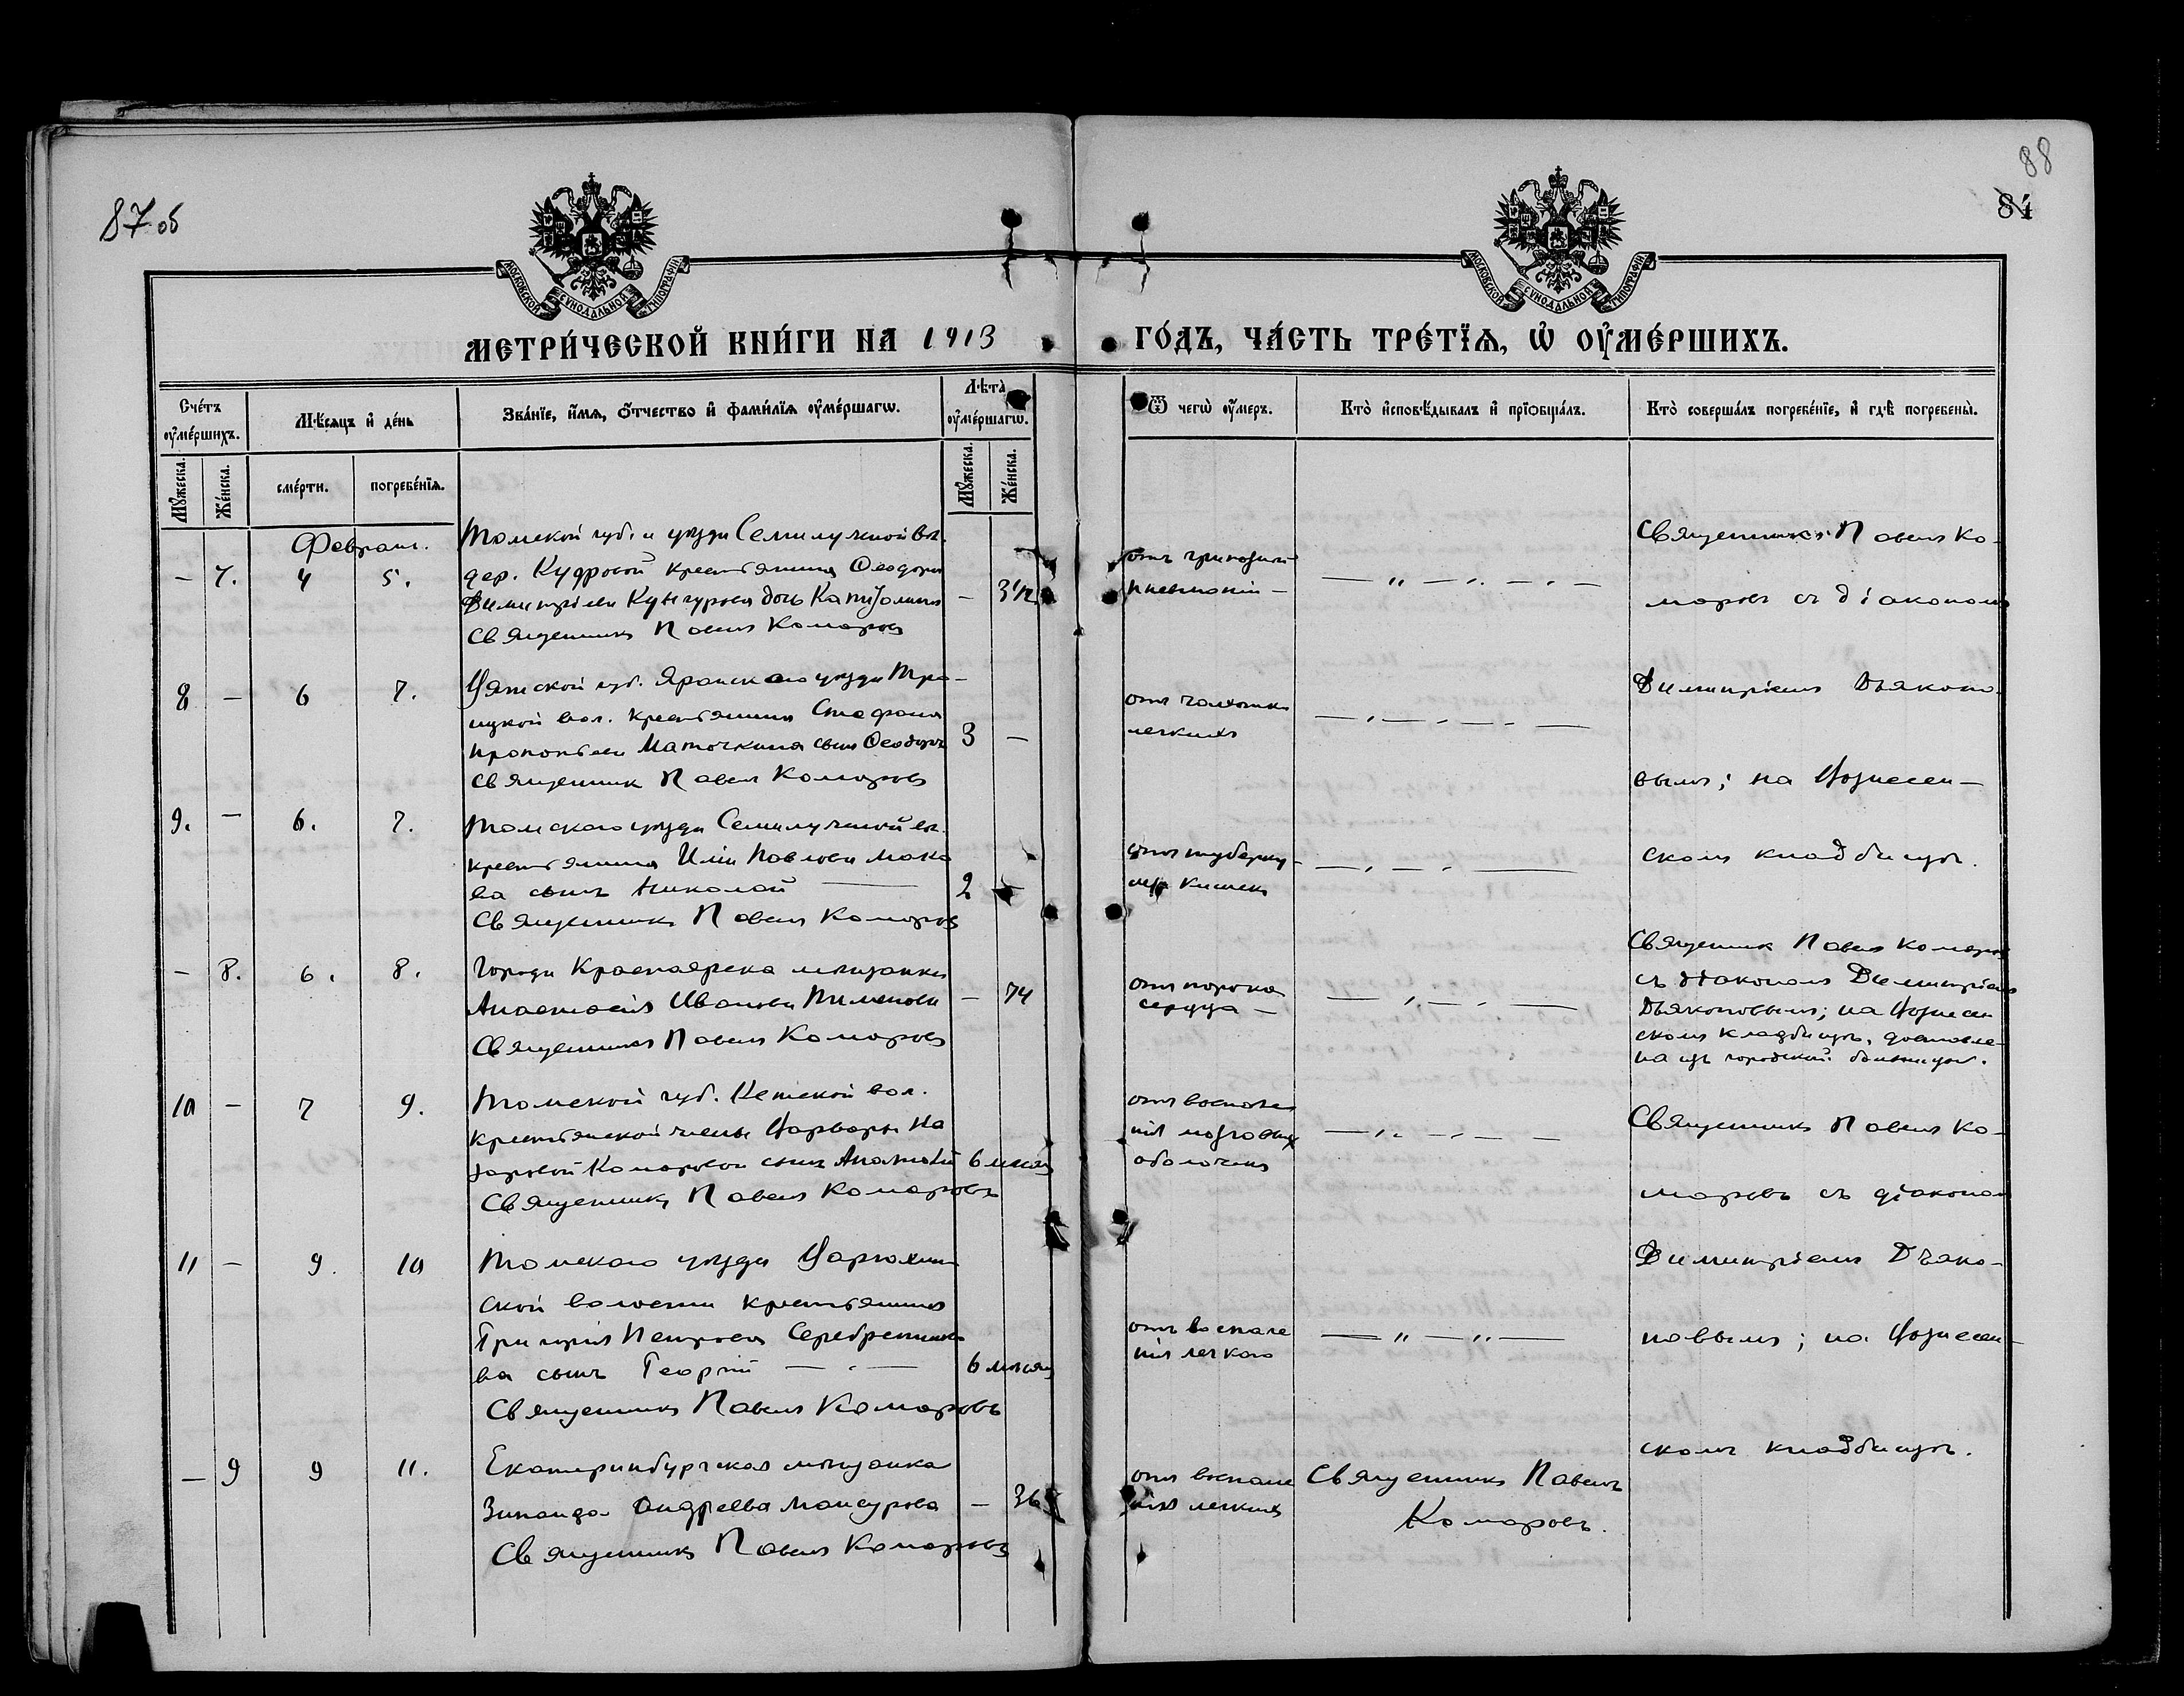 87 об
88
84
МОСКОВСКОЙ СѴНОДАЛЬНОЙ ТИПОГРАФІИ
МОСКОВСКОЙ СѴНОДАЛЬНОЙ ТИПОГРАФІИ
МЕТРИ́ЧЕСКОЙ КНИ́ГИ НА 1913 ГО́ДЪ, ЧА́СТЬ ТРЕ́ТЇѦ, Ѡ҆ ОУ҆МЕ́РШИХЪ.
Сче́тъ оу҆ме́ршихъ.
Мꙋ́жеска.
Же́нска.
Мѣ́сѧцъ и҆ де́нь
сме́рти.
погребе́нїѧ.
Зва́нїе, и҆́мѧ, ѻ҆́тчество и҆ фами́лїѧ оу҆ме́ршагѡ.
Лѣ́та оу҆ме́ршагѡ.
Мꙋ́жеска.
Же́нска.
Ѿ чегѡ̀ оу҆́меръ.
Кто̀ и҆сповѣ́дывалъ и҆ прїѡбща́лъ.
Кто̀ соверша́лъ погребе́нїе, и҆ гдѣ̀ погребены̀.
Февраль.
– 7. 4 5.
Томской губ. и уѣзда Семилужной вол.
дер. Кудровой крестьянина Ѳеодора
Димитріева Кунгурова дочь Капитолина – 3 1/2
Священникъ Павелъ Комаровъ
отъ гриппозной
пневмоніи –
— „ — „ — „ —
Священникъ Павелъ Ко-
маровъ съ діакономъ
8 – 6 7.
Вятской губ. Яранскаго уѣзда Тро-
ицкой вол. крестьянина Стефана
Прокопьева Маточкина сынъ Ѳеодоръ 3 –
Священник Павелъ Комаровъ
отъ чахотки
легкихъ
— „ — „ — „ —
Димитріемъ Дьяконо-
вымъ; на Вознесен-
9. – 6. 7.
Томскаго уѣзда Семилужной вол.
крестьянина Иліи Павлова Мака
ва сынъ Николай — 2 –
Священникъ Павелъ Комаровъ
отъ туберку-
леза кишекъ
— „ — „ —
скомъ кладбищѣ.
– 8. 6. 8.
Города Красноярска мѣщанка
Анастасія Иванова Пименова – 74
Священникъ Павелъ Комаровъ
отъ порока
сердца –
— „ — „ —
Священник Павелъ Комаровъ
съ діакономъ Димитріемъ
Дьяконовымъ; на Вознесен
скомъ кладбищѣ, доставле-
на изъ городской больницы.
10 – 7 9.
Томской губ. Кетской вол.
крестьянской жены Варвары На
заровой Комаровой сынъ Анатолій 6 мѣсяц
Священникъ Павелъ Комаровъ
отъ воспале
нія мозговыхъ
оболочекъ
— „ — „ — —
Священникъ Павелъ Ко-
маровъ съ діакономъ
11 – 9. 10
Томскаго уѣзда Варюхин
ской волости крестьянина
Григорія Петрова Серебренико
ва сынъ Георгій — „ — 6 мѣсяц
Священникъ Павелъ Комаровъ
отъ воспале
нія легкаго
— „ — „ —
Димитріемъ Дьяко-
новымъ; на Вознесен-
скомъ кладбищѣ.
– 9 9 11.
Екатеринбургская мѣщанка
Зинаида Андреева Мансурова – 36
Священникъ Павелъ Комаровъ
отъ воспале
нія легкихъ
Священникъ Павелъ
Комаровъ.